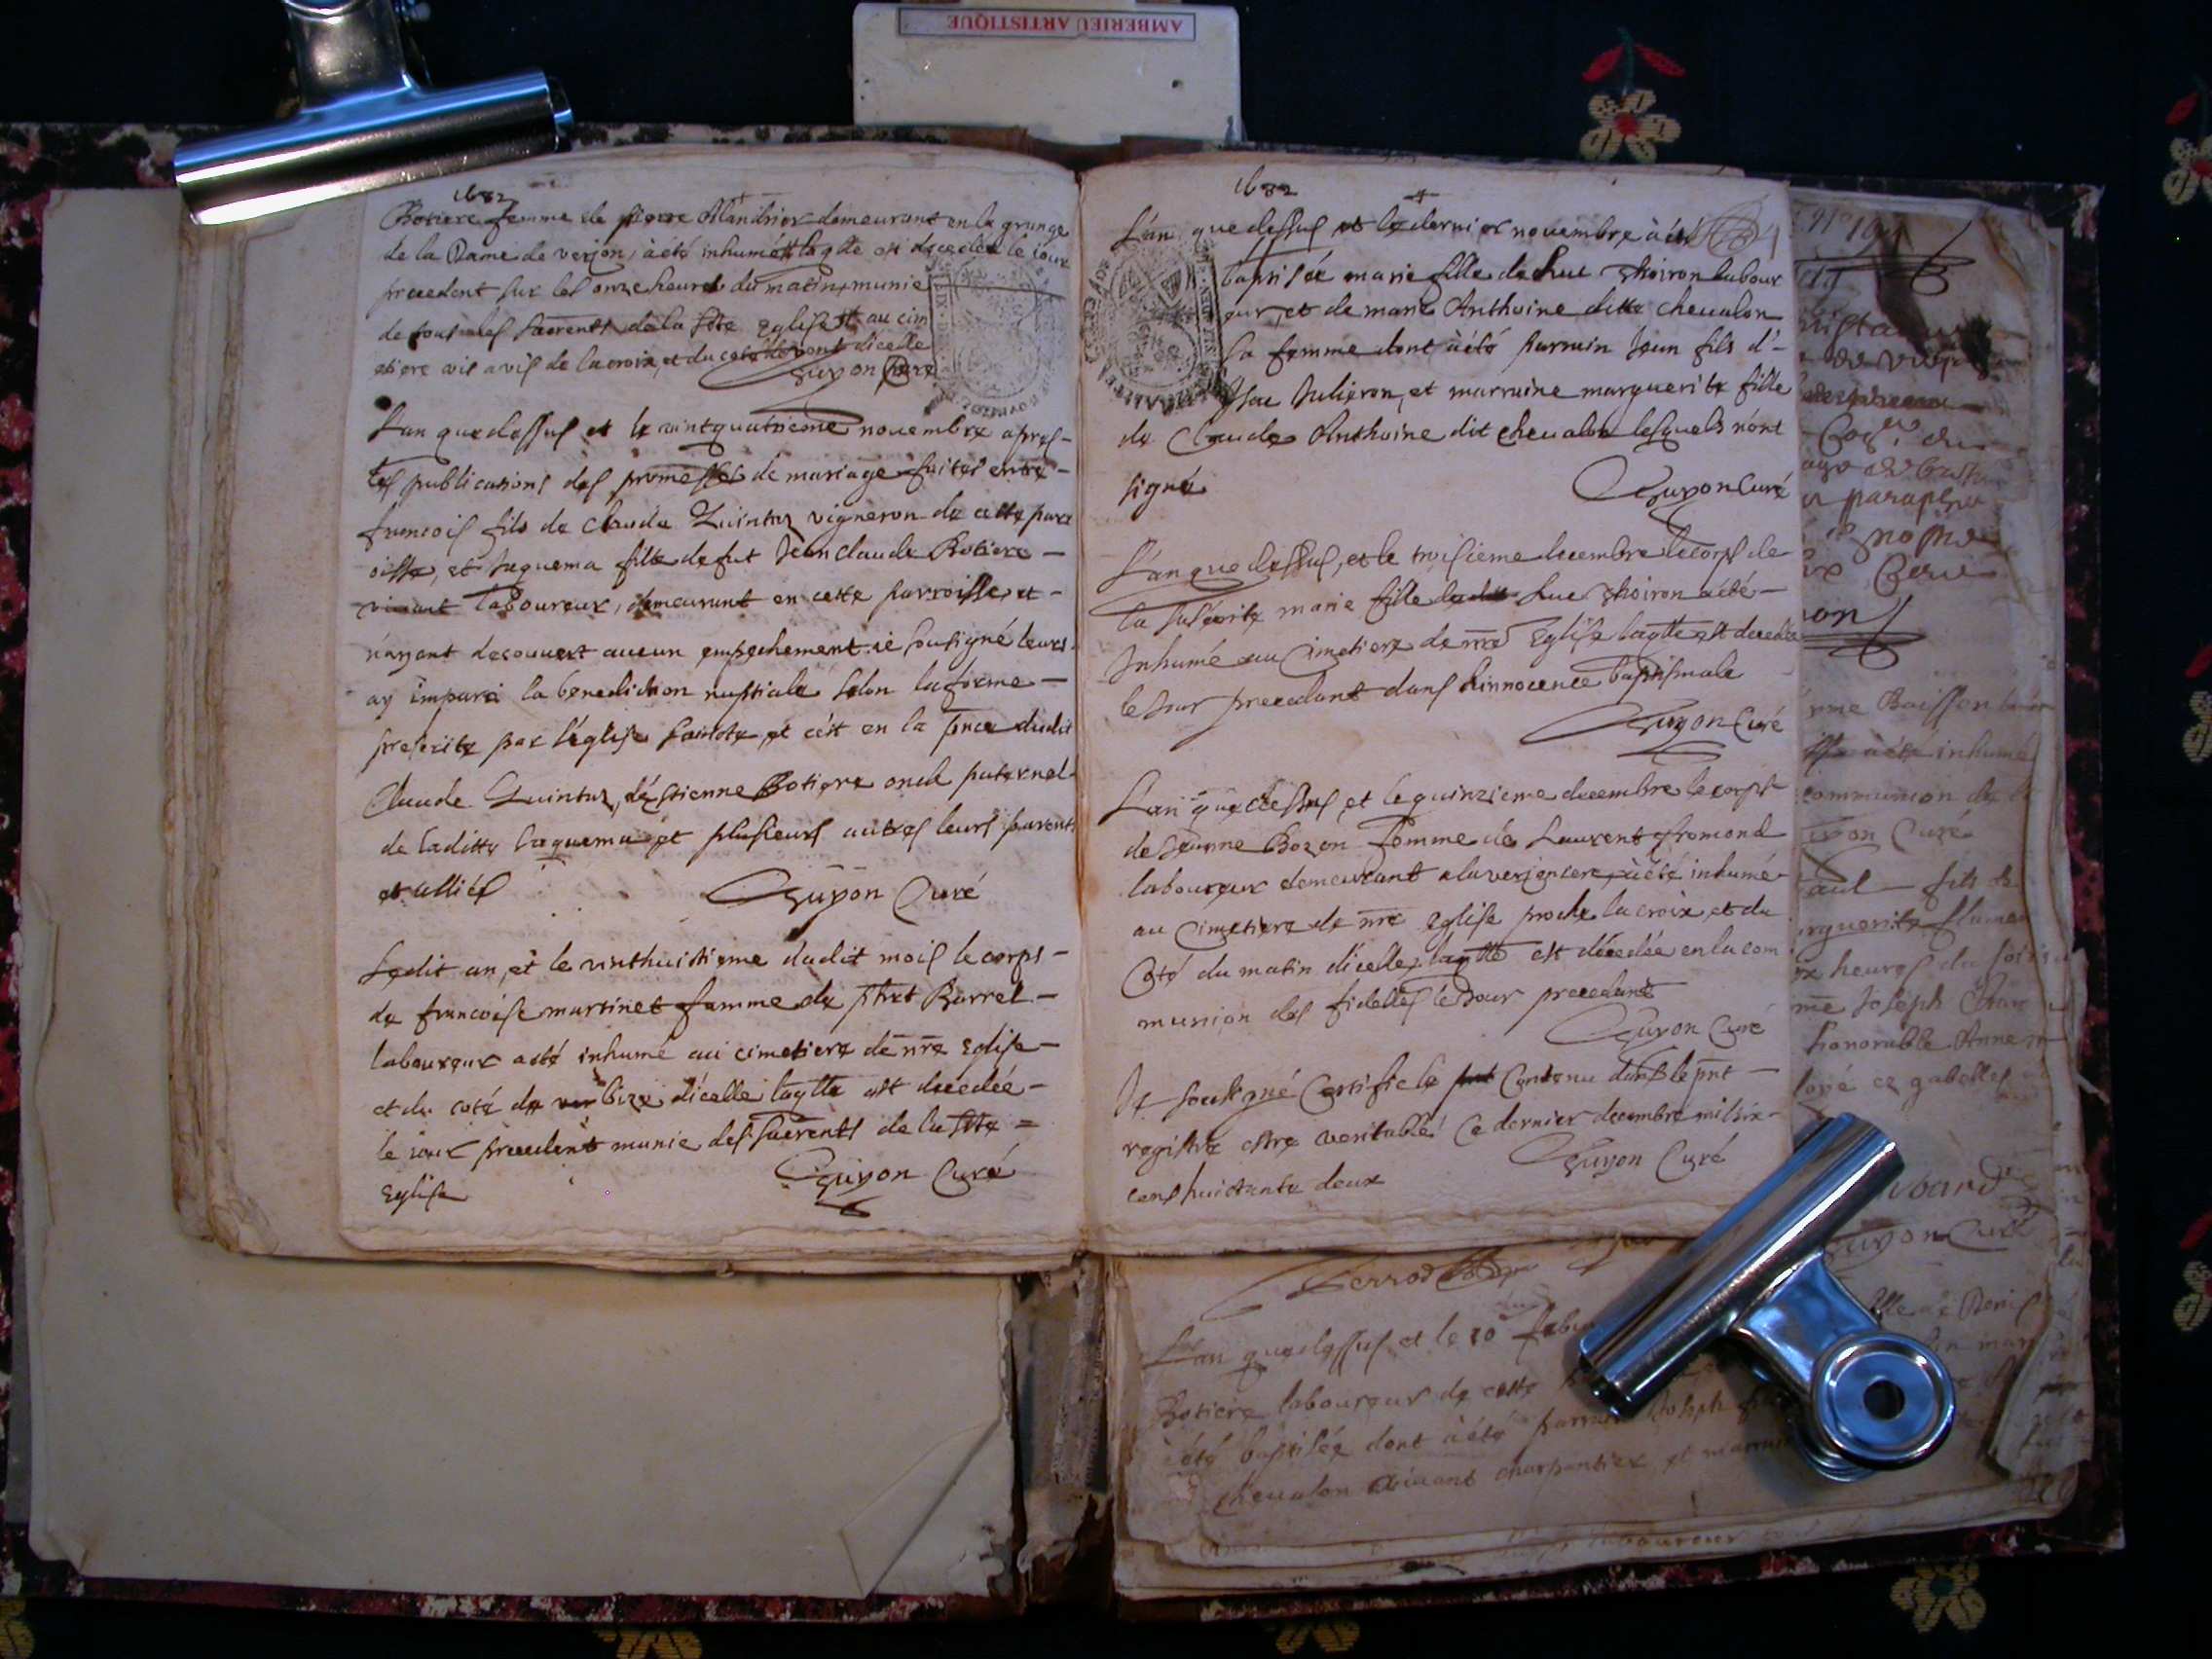 AMBERIEU ARTISTIQUE
1682
Botiere femme de pierre Alandrier demeurant en la grange
de la Dame de verjon, à été inhumé laqlle est decedée le iour
precedent sur les onze heures du matin munie
de tous les sacrents de la ste Eglise au cim
etiere vis a vis de la croix, et du coté de vent dicelle
Guyon Curé
L'an que dessus et le vintquatrieme novembre apres-
les publications des promesses de mariage faites entre-
francois fils de Claude Quintuz vigneron de cette paro
oisse, et Jaquema fille de fut Jean claude Botiere-
vivant laboureur, demeurant en cette parroisse et-
n'ayant decouvert aucun empechement ie sousigné leurs
ay imparti la benediction nuptiale selon la forme-
prescrite par l'eglise sainte et cest en la pnce dudit
Claude Quintuz, d'Estienne Botiere oncle paternel
de laditte Jaquema et plusieurs autres leurs parents
et alliés Guyon Curé
Ledit an, et le vinthuictieme dudit mois le corps-
de francoise martinet femme de Barrel-
laboureur a eté inhumé au cimetiere de nre Eglise-
et du coté de bize dicelle laqtte est decedée-
le iour precedent munie des sacrents de la ste =
Eglise Guyon Curé
1682
L'an que dessus et le dernier novembre à eté
baptisée marie fille de Luc Thoiron labour
eur, et de marie Anthoine ditte chevalon
sa femme dont à été parrain Jean fils d'-
Isac Julieron, et marraine marguerite fille
de Claude Anthoine dit chevalon lesquels n'ont
signé Guyon Curé
L'an que dessus, et le troisieme decembre le corps de
la susecrite marie fille Luc Thoiron a été-
Inhumé au Cimetiere de nre Eglise laqtte est decedée
le Jour precedant dans l'innocence baptismale
Guyon Curé
L'an que dessus, et le quinzieme decembre le corps
de Jeanne Bozon femme de Laurent fromond
laboureur demeurant a la verjonere, à été inhumé-
au Cimetiere de nre Eglise proche la croix, et du
Coté du matin dicelle, laqtte est décedée en la com
munion des fidelles le Jour precedant
Guyon Curé
Je soussigné Certifie le Contenu dans le pnt-
registre estre veritable Ce dernier decembre mil six-
cens huictante deux Guyon Curé
parapher
inhumé
communion de
Guyon Curé
fils de
heures du
Joseph
honorable Anne
Guyon Curé
L'an que dessus et le 10
Botiere laboureur de cette
à été baptisée dont à été parrain Joseph
chevalon vivant charpentier, et marraine